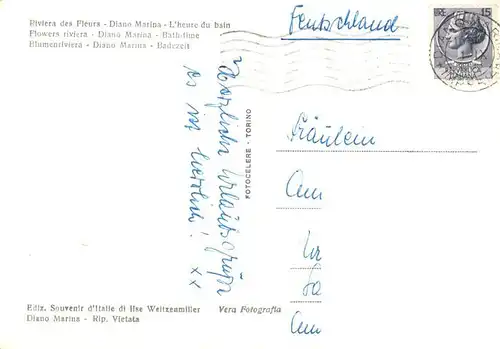 Riviera des Fleurs - Diano Marina - L'heure du bain
Flowers riviera - Diano Marina - Bath-time
Blumenriviera - Diano Marina - Badezeit
Deutschland
15
Herzliche Urlaubsgrüße
es ist herrlich! xx
FOTOCELERE - TORINO
Fräulein
Am
Am
Ediz. Souvenir d'Italie di Ilse Weitzenmiller
Diano Marina - Rip. Vietata
Vera Fotografia